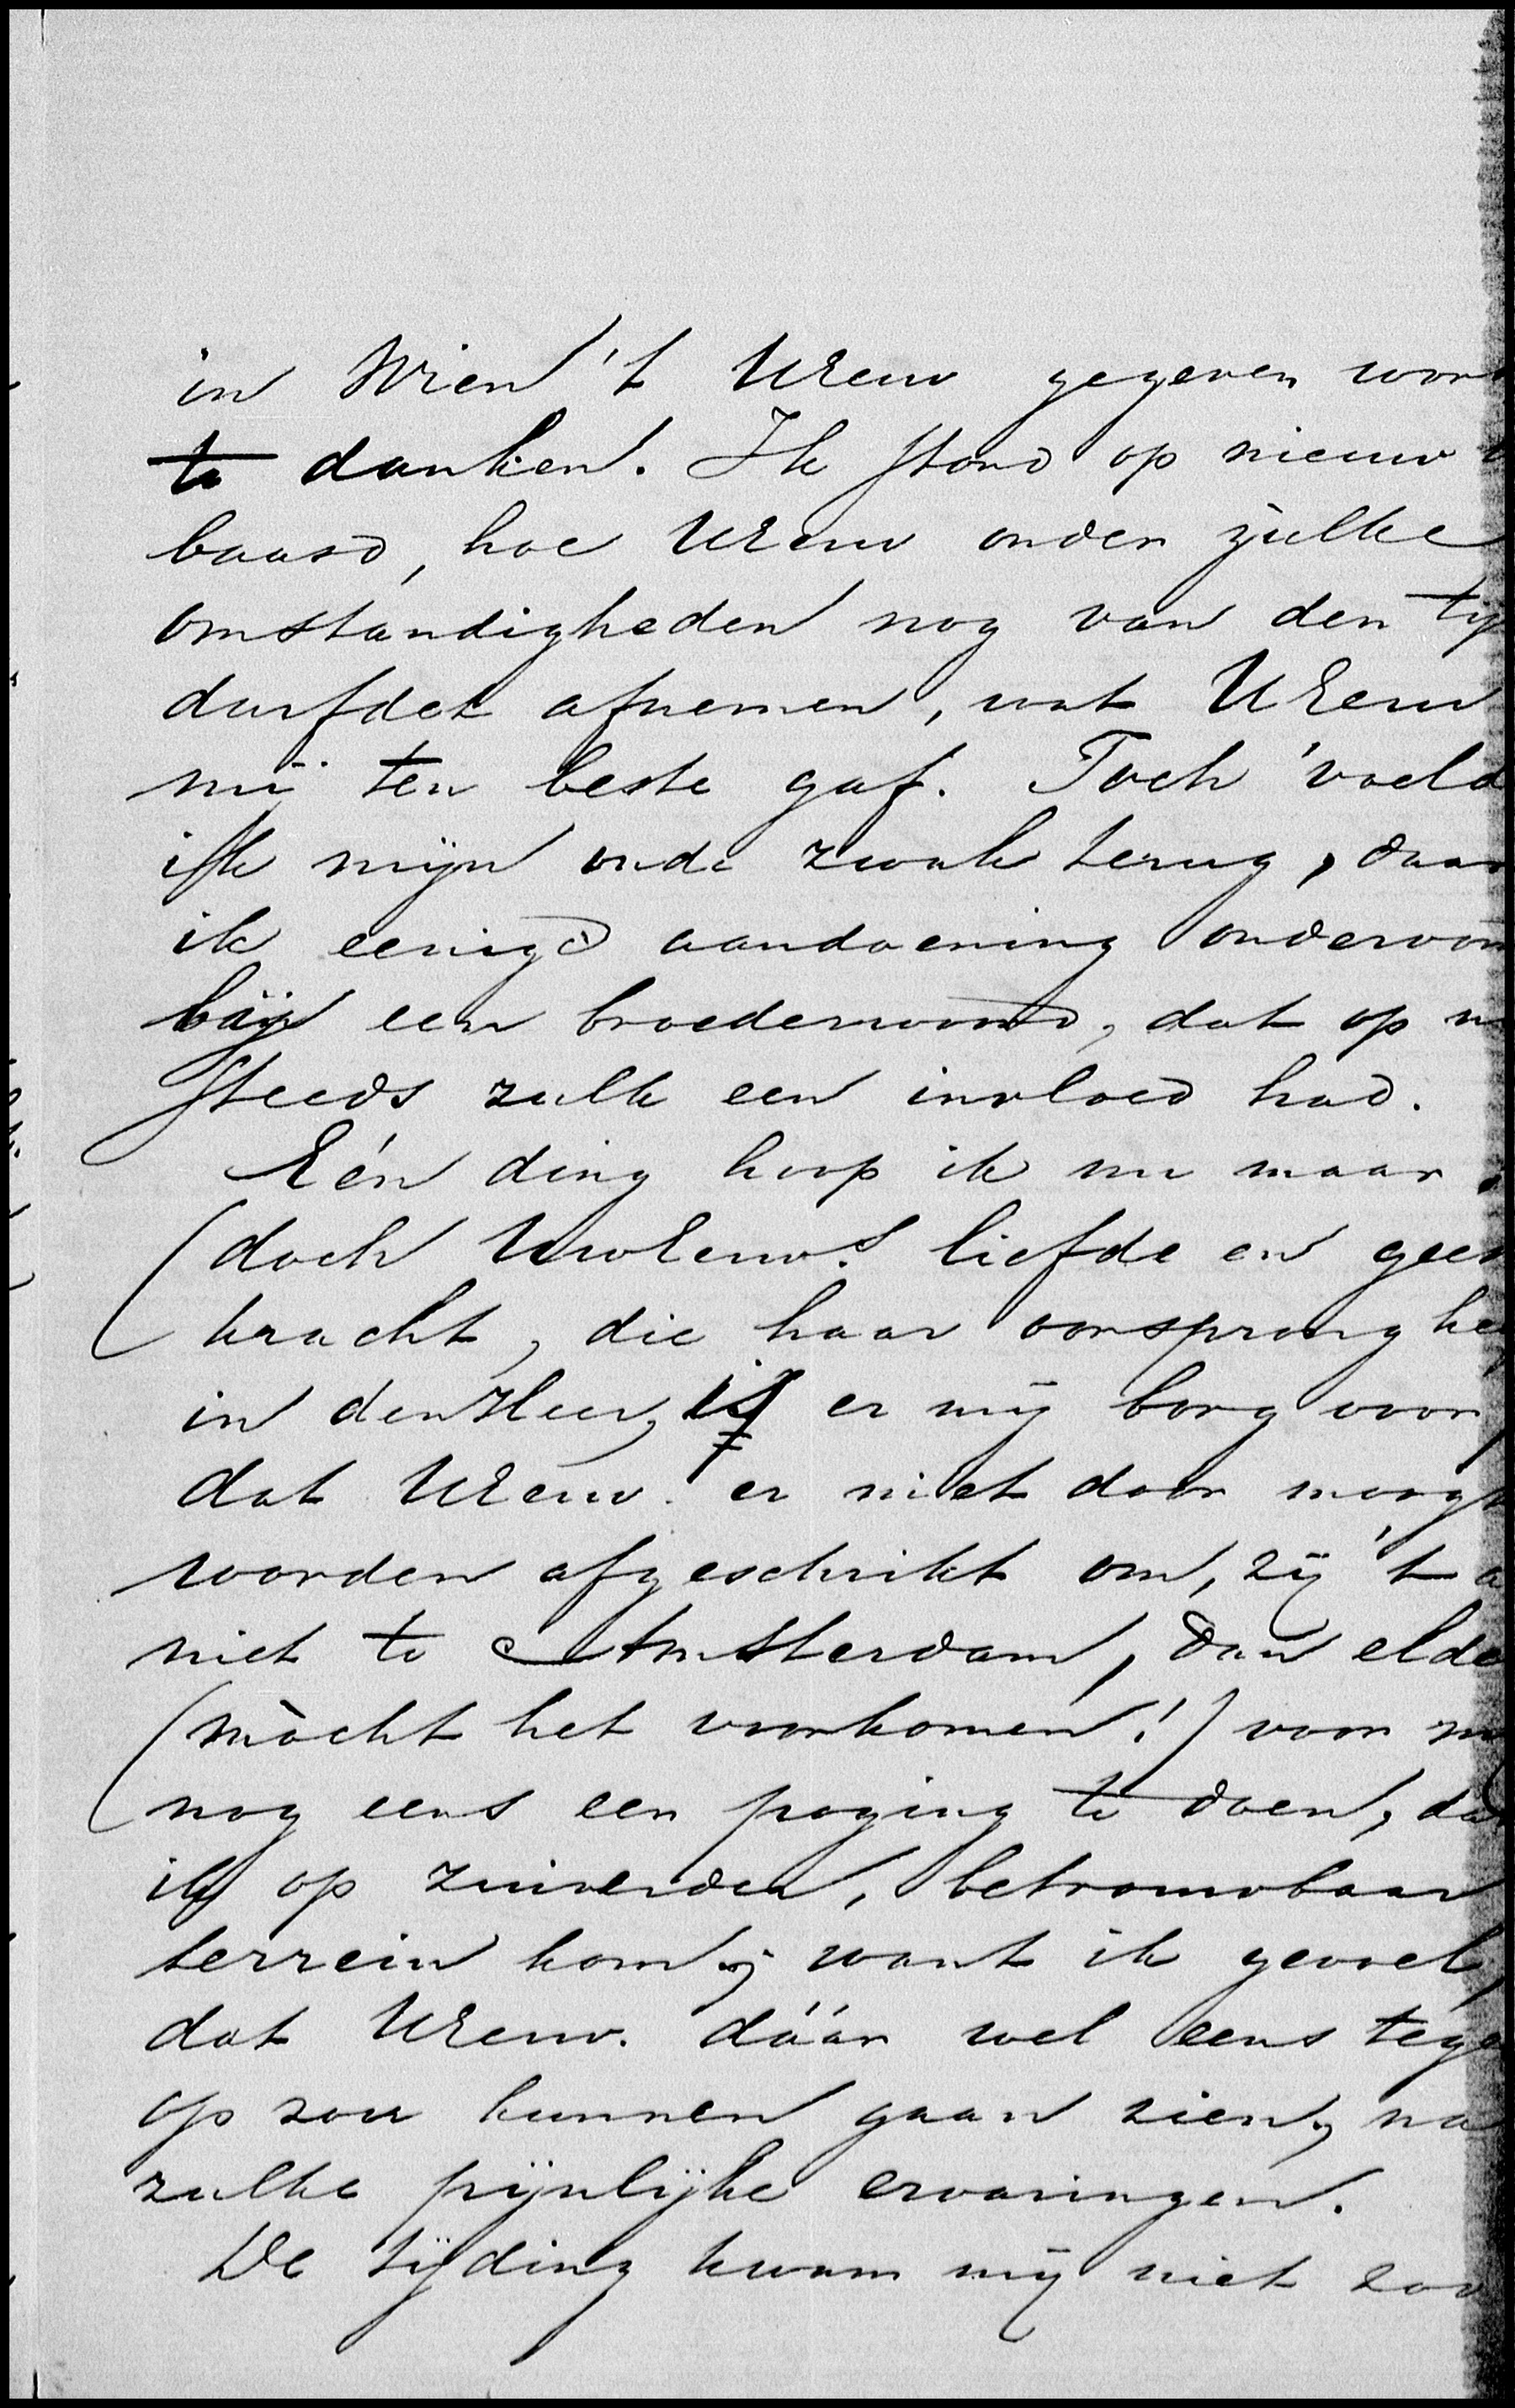 in Wien 't UEerw gegeven word
te danken. Ik stond op nieuw
baasd, hoe UEerw onder zulke
omstandigheden nog van den tij
durfdet afnemen, wat UEerw
mij ten beste gaf. Toch voeld
ik mijn oude zwak terug, daar
ik eenige aandoening ondervon
bij een broederwoord, dat op m
steeds zulk een invloed had.
Eén ding hoop ik nu maar
(doch UwEerws liefde en gees
kracht, die haar oorsprong he
in den Heer, is er mij borg voor,
dat UEerw. er niet door moogt
worden afgeschrikt om, zij 't a
niet te Amsterdam, dan elde
(mòcht het voorkomen!) voor m
nog eens een poging te doen, da
ik op zuiverder, betrouwbaar
terrein kom; want ik gevoel,
dat UEerw. dáár wel eens tege
op zou kunnen gaan zien, na
zulke pijnlijke ervaringen.
De tijding kwam mij niet zoo